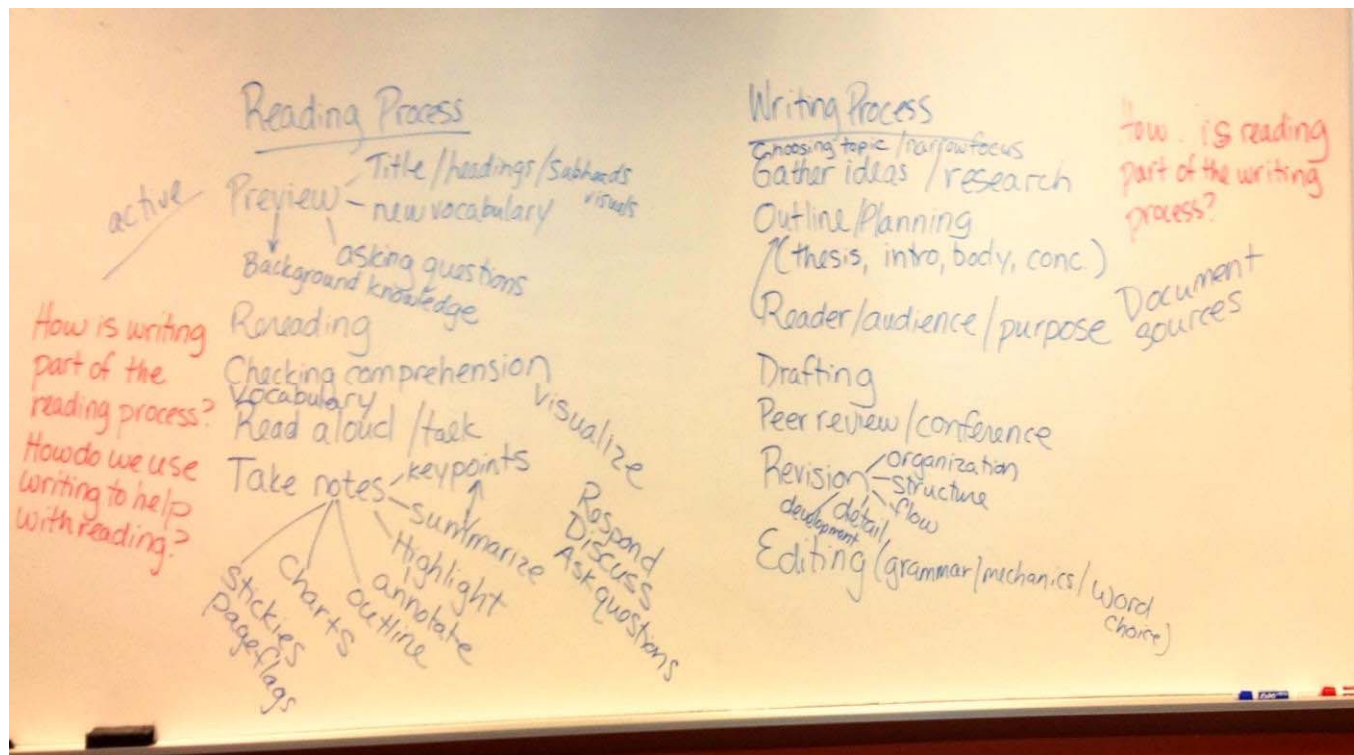 Reading Process
active
Preview
Title/headings/subheads
visuals
new vocabulary
asking questions
Background knowledge
Rereading
Checking comprehension
Vocabulary
Visualize
Read aloud/talk
Take notes
keypoints
summarize
Highlight
annotate
outline
charts
stickies
pageflags
Respond
Discuss
Ask questions
How is writing
part of the
reading process?
How do we use
writing to help
with reading?
Writing Process
Choosing topic/narrow focus
Gather ideas/research
Outline/Planning
(thesis, intro, body, conc.)
Reader/audience/purpose
Document
sources
Drafting
Peer review/conference
Revision
organization
structure
flow
detail
development
Editing (grammar/mechanics/word
choice)
How is reading
part of the writing
process?